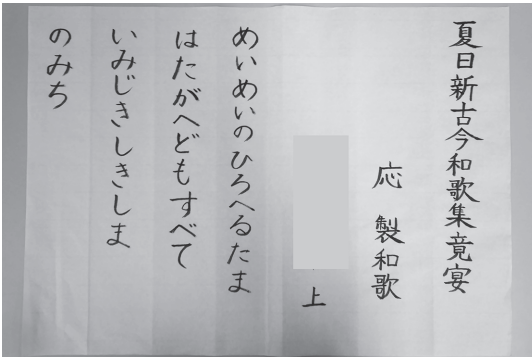 夏日新古今和歌集竟宴
応 製和歌
上
めいめいのひろへるたま
はたがへどもすべて
いみじきしきしま
のみち